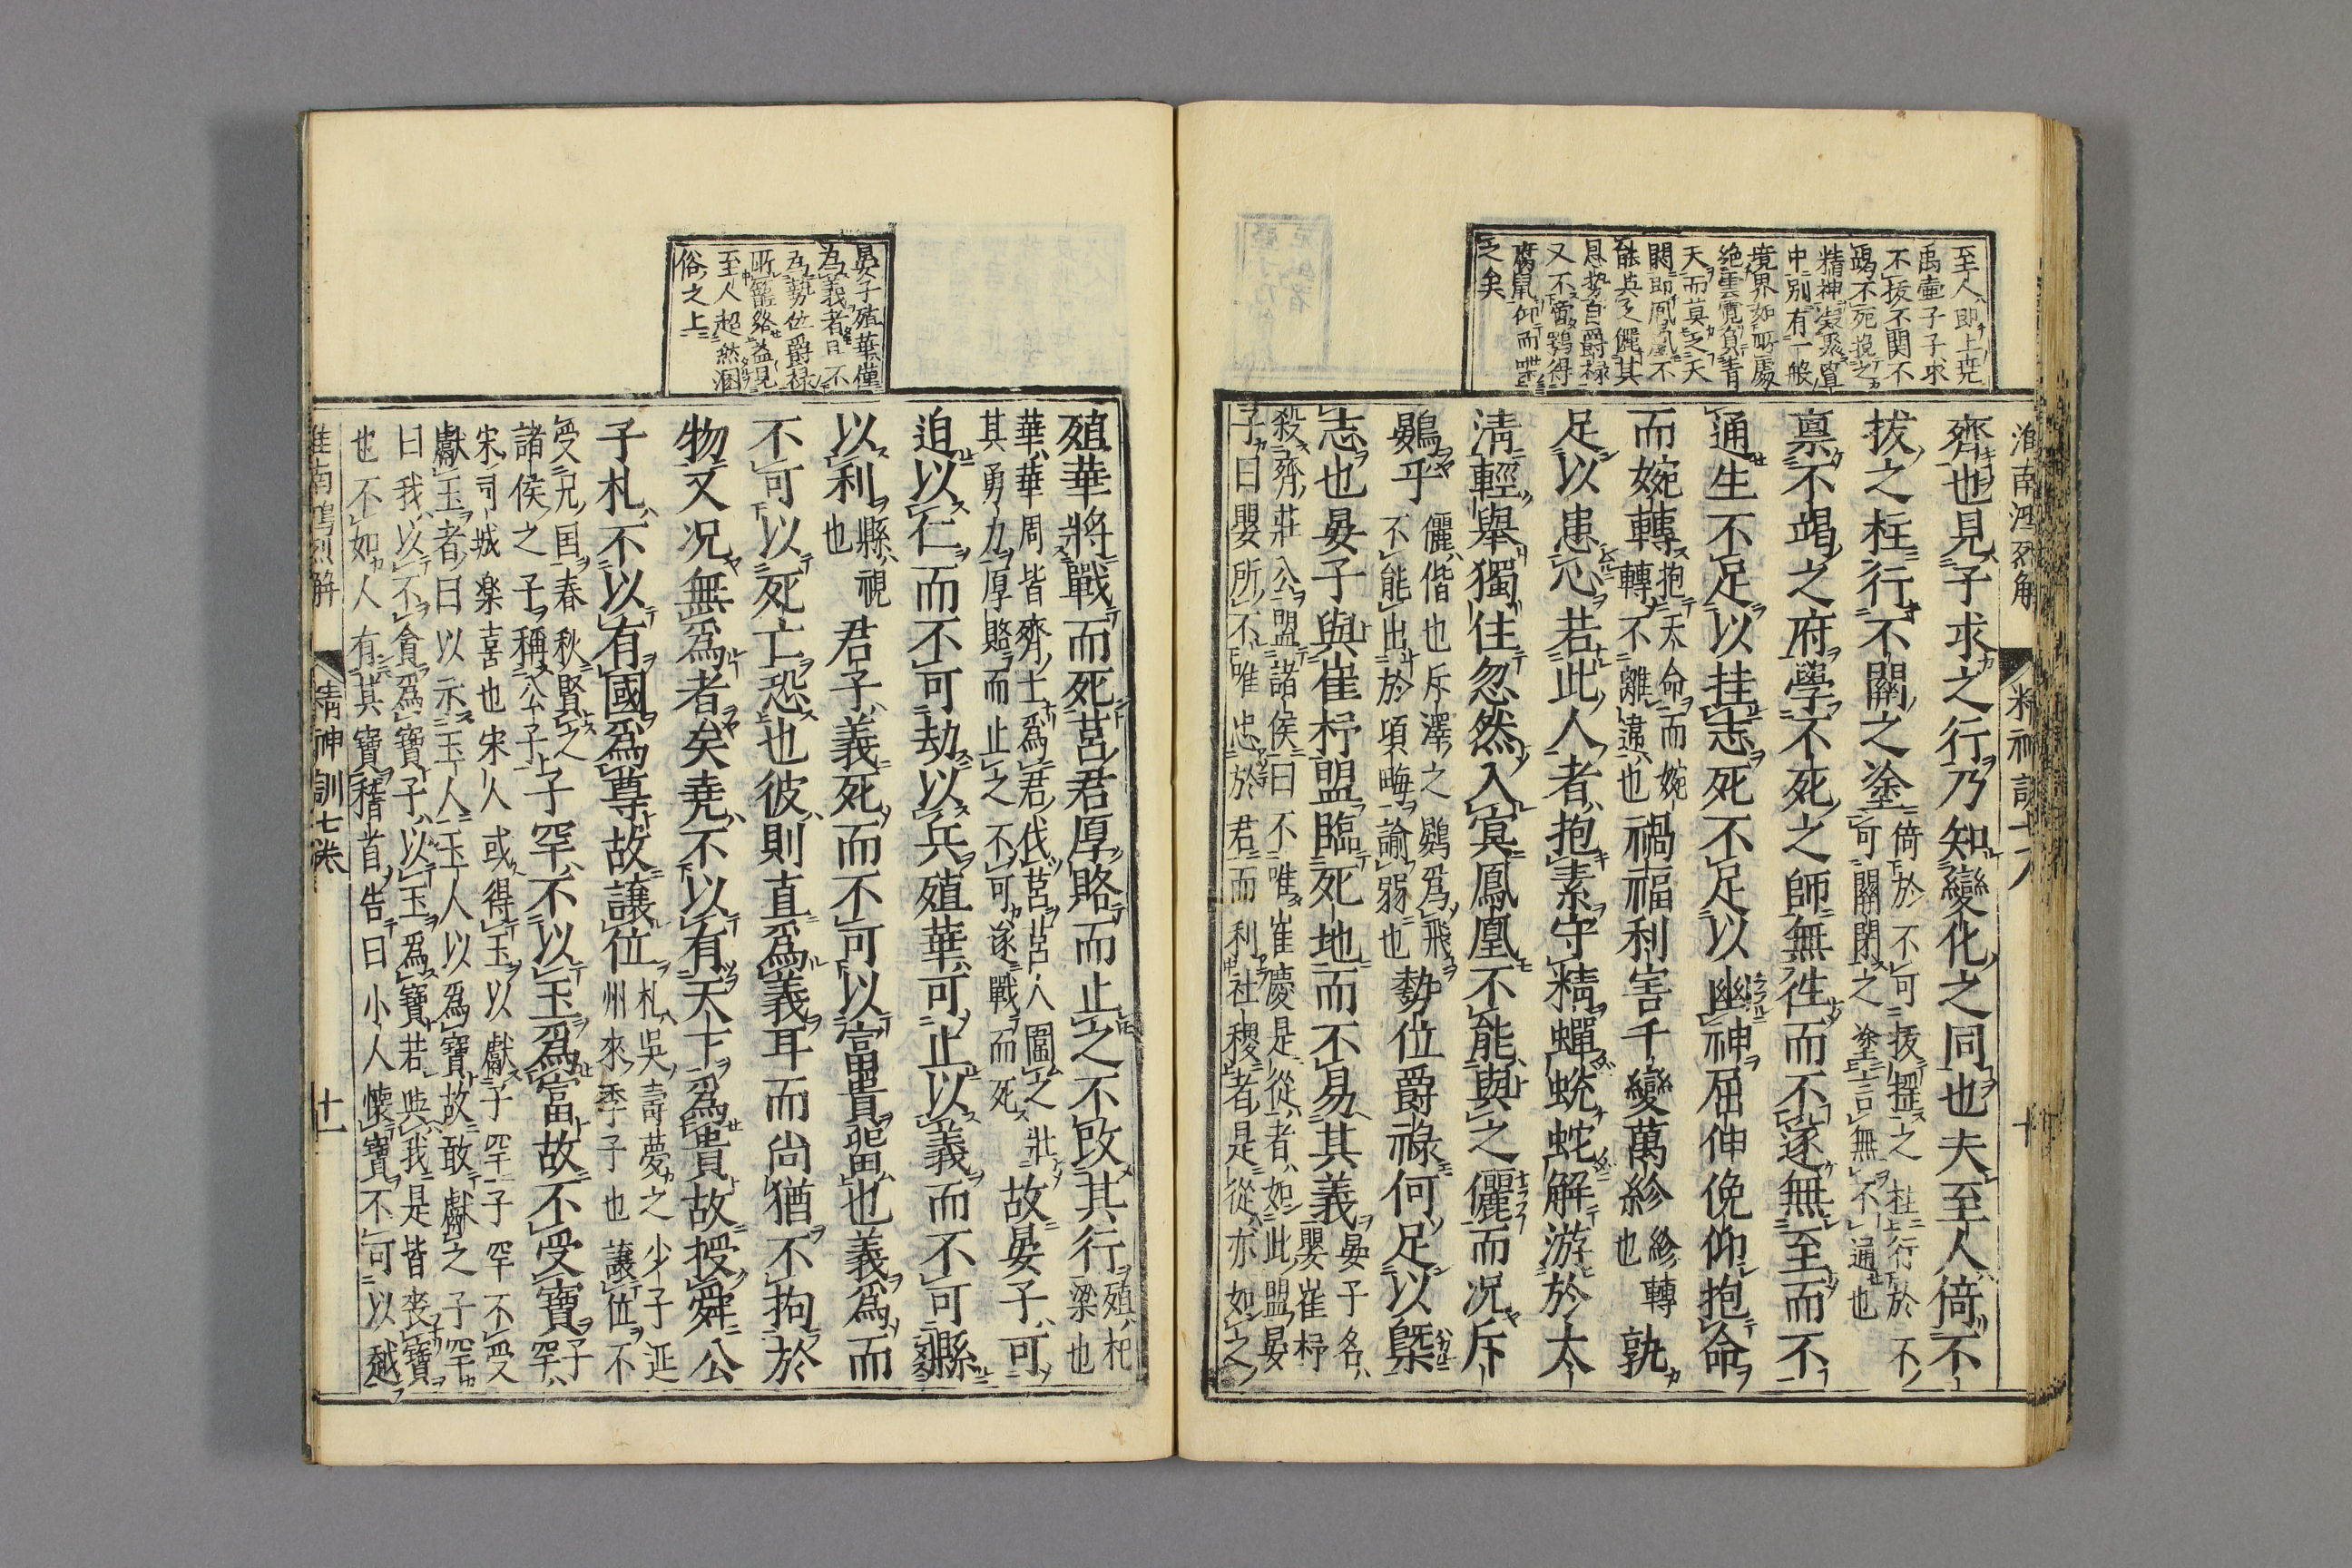 淮南鴻烈解 精神訓七巻 十
至人即上尭
禹壷子子求
不抜不関不
竭不死挽之
精神凝聚冥
中別有一般
境界如所處
絶雲霓負青
天而莫之夭
閼即鳳凰不
能與之儷其
又不啻鷃得
腐鼠仰而嚇
之矣
齊也見子求之行乃知變化之同也夫至人倚不
拔之柱行不關之塗倚於不可拔揺之柱行於不可關閉之塗言無不通也
禀不竭之府學不死之師無徃而不遂無至而不
通生不足以挂志死不足以幽神屈伸俛仰抱命
而婉轉抱天命而婉轉不離違也禍福利害千變萬紾紾轉也孰
足以患心若此人者抱素守精蟬蛻蛇解游於太
清輕舉獨住忽然入冥鳳凰不能與之儷而況斥
鷃乎儷偕也斥澤之鷃爲飛不能出於頃畮諭弱也勢位爵祿何足以槩
志也晏子與崔杼盟臨死地而不易其義晏子名嬰崔杼
殺齊莊公盟諸侯曰不唯崔慶是從者如此盟晏
子曰嬰所不唯忠於君而利社稷者是從亦如之
晏子殖華僅
為義者曰不
為勢位爵禄
所籠絡益見
至人超然溷
俗之上
殖華將戰而死莒君厚賂而止之不改其行殖杞梁也
華華周皆齊士爲君伐莒莒人圖之壯其勇力厚賂而止之不可遂戰而死故晏子可
迫以仁而不可劫以兵殖華可止以義而不可縣
以利縣視也君子義死而不可以富貴留也義爲而
不可以死亡恐也彼則直爲義耳而尚猶不拘於
物又況無爲者矣堯不以有天下爲貴故授舜公
子札不以有國爲尊故讓位札吳壽夢之少子延州來季子也讓位不
受兄国春秋賢之諸侯之子稱公子子罕不以玉爲富故不受寶子罕
宋司城楽喜也宋人或得玉以獻子罕子罕不受
獻玉者曰以示玉人玉人以爲寶故敢獻之子罕
曰我以不貪爲寶子以玉爲寶若與我是皆喪寶
也不如人有其寶稽首告曰小人懐寶不可以越
淮南鴻烈解 精神訓七巻 十一